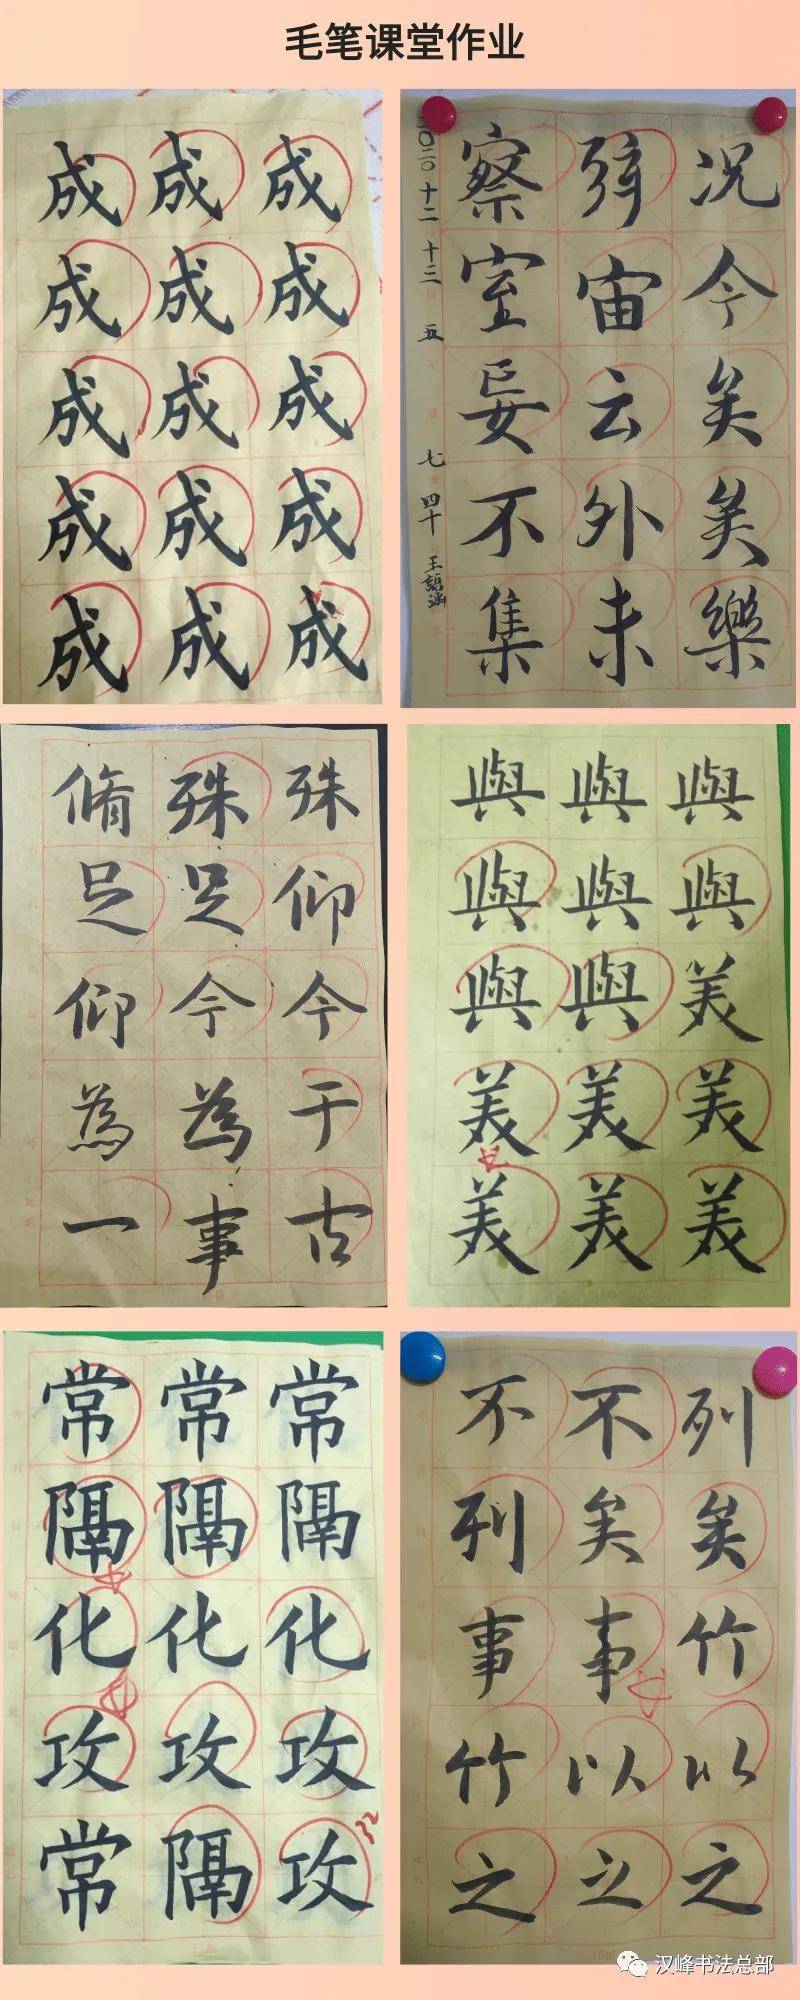 毛笔课堂作业
成成成成成
成成成成成
成成成成成
况今矣矣樂
宙云外未
察室妄不集
二〇二〇 十二 十三 五 七 四十 王
殊仰今于古
殊足今為事
脩足仰為一
與與美美美
與與與美美
與與與美美
常隔化攻攻
常隔化攻隔
常隔化攻常
列矣竹以之
不矣事以之
不列事竹之
汉峰书法总部